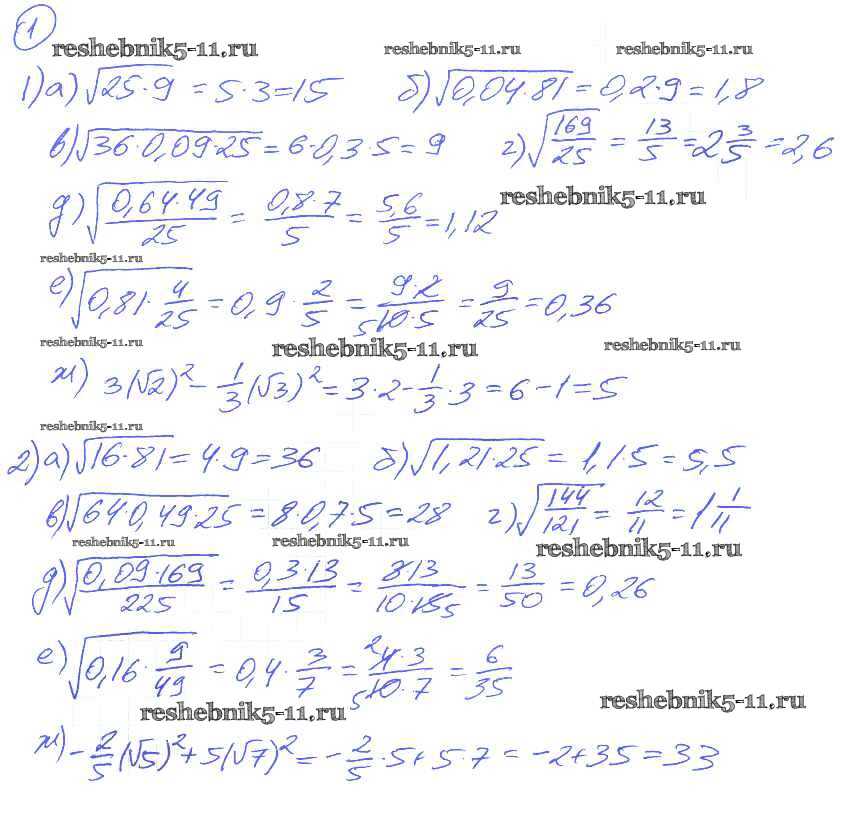 1
reshebnik5-11.ru reshebnik5-11.ru reshebnik5-11.ru
1) а) √25·9 = 5·3 = 15 б) √0,04·81 = 0,2·9 = 1,8
в) √36·0,09·25 = 6·0,3·5 = 9 г) √169/25 = 13/5 = 2 3/5 = 2,6
reshebnik5-11.ru
д) √0,64·49/25 = 0,8·7/5 = 5,6/5 = 1,12
reshebnik5-11.ru
е) √0,81·4/25 = 0,9·2/5 = 9·2/5 10·5 = 9/25 = 0,36
reshebnik5-11.ru reshebnik5-11.ru reshebnik5-11.ru
ж) 3(√2)² - 1/3(√3)² = 3·2 - 1/3·3 = 6 - 1 = 5
reshebnik5-11.ru
2) а) √16·81 = 4·9 = 36 б) √1,21·25 = 1,1·5 = 5,5
в) √64·0,49·25 = 8·0,7·5 = 28 г) √144/121 = 12/11 = 1 1/11
reshebnik5-11.ru reshebnik5-11.ru reshebnik5-11.ru
д) √0,09·169/225 = 0,3·13/15 = 3·13/10·15 5 = 13/50 = 0,26
е) √0,16·9/49 = 0,4·3/7 = 2 4·3/5 10·7 = 6/35
reshebnik5-11.ru reshebnik5-11.ru
ж) -2/5(√5)² + 5(√7)² = -2/5·5 + 5·7 = -2 + 35 = 33